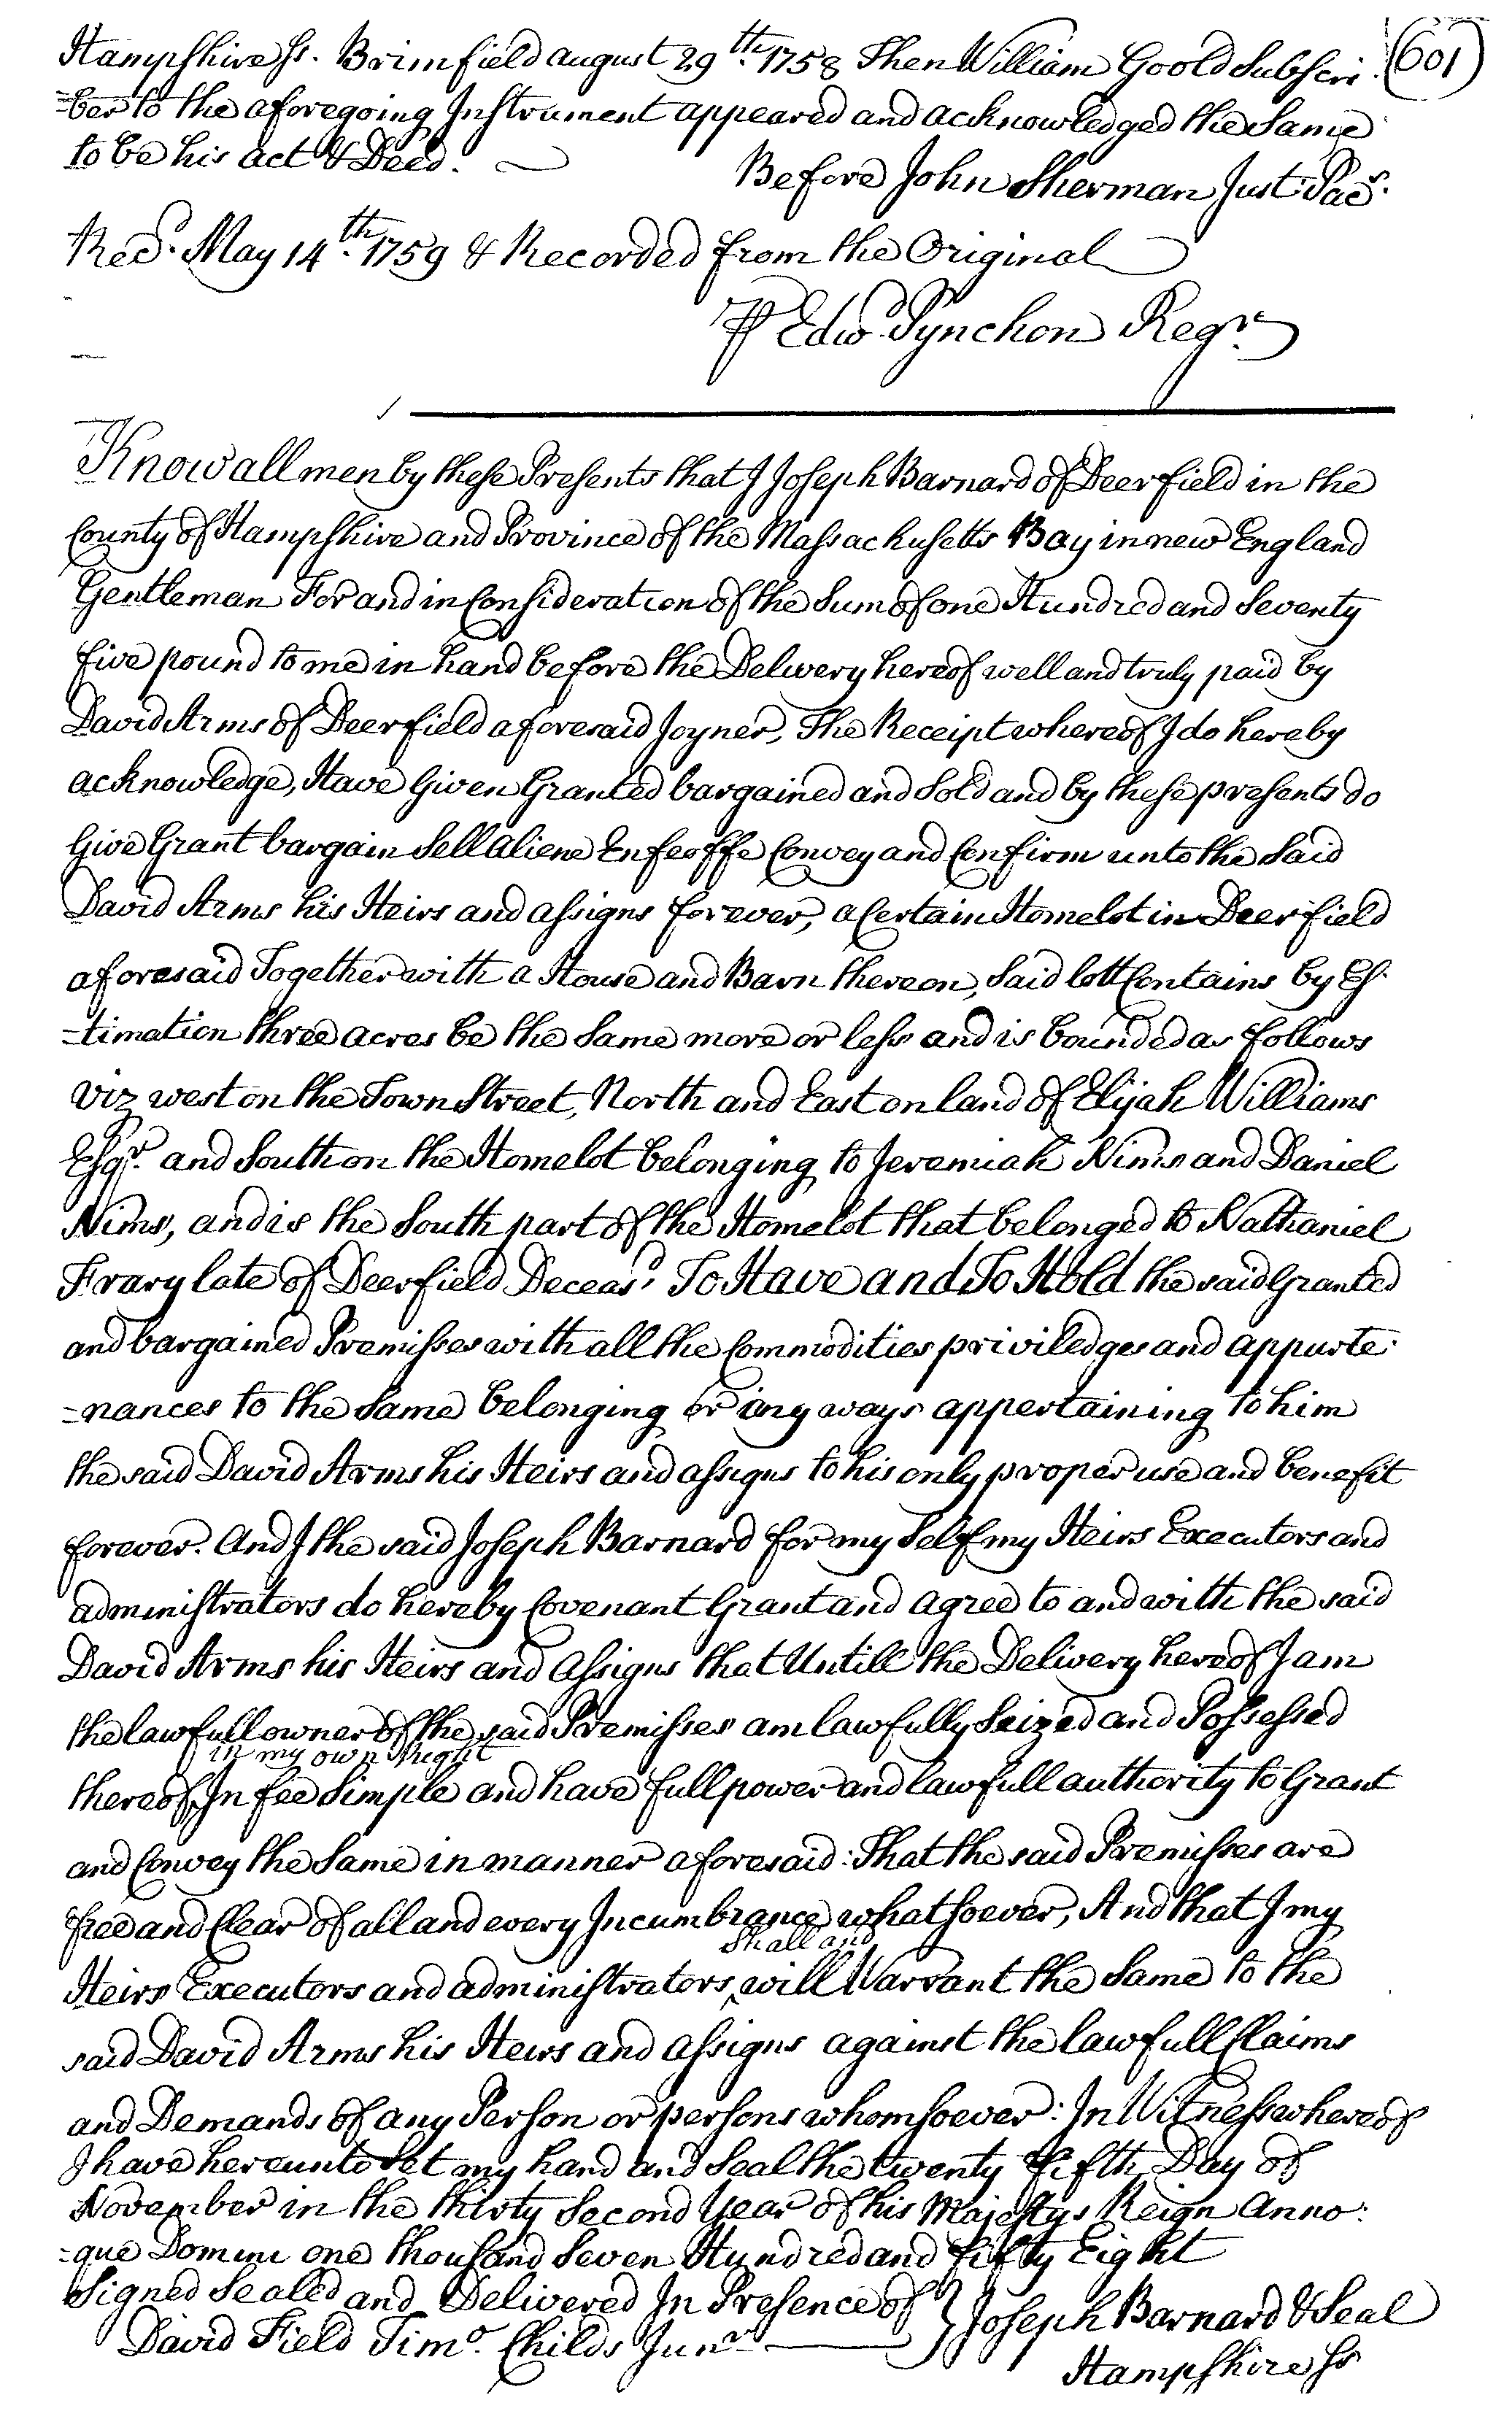 Hampshire ss. Brimfield august 29th. 1758 Then William Goold Subscri (601)
-ber to the aforegoing Instrument appeared and acknowledged the Same
to be his act & Deed.
Before John Sherman Just: Pacs.
Recd. May 14th. 1759 & Recorded from the Original
P Edw Pynchon Regr
Know all men by these Presents that I Joseph Barnard of Deerfield in the
County of Hampshire and Province of the Massachusetts Bay in new England
Gentleman For and in Consideration of the Sum of one Hundred and Seventy
five pound to me in hand before the Delivery hereof well and truly paid by
David Arms of Deerfield aforesaid Joyner, The Receipt whereof I do hereby
acknowledge, Have Given Granted bargained and Sold and by these presents do
Give Grant bargain Sell aliene Enfeoffe Convey and Confirm unto the Said
David Arms his Heirs and assigns forever, a Certain Homelot in Deerfield
aforesaid Together with a House and Barn thereon, Said lott Contains by Es-
-timation three acres be the Same more or less and is bounded as follows
viz west on the Town Street, North and East on land of Elijah Williams
Esqr. and South on the Homelot belonging to Jeremiah Nims and Daniel
Nims, and is the South part of the Homelot that belonged to Nathaniel
Frary late of Deerfield Deceasd. To Have and To Hold the said Granted
and bargained Premisses with all the Commodities priviledges and appurte-
-nances to the Same belonging or any ways appertaining to him
the said David Arms his Heirs and assigns to his only proper use and benefit
forever. And I the said Joseph Barnard for my Self my Heirs Executors and
administrators do hereby Covenant Grant and agree to and with the said
David Arms his Heirs and Assigns that Untill the Delivery hereof I am
the lawfull owner of the said Premisses am lawfully Seized and Possessed
in my own Right
thereof, In fee Simple and have full power and lawfull authority to Grant
and Convey the Same in manner aforesaid: That the said Premisses are
free and Clear of all and every Incumbrance whatsoever, And that I my
Shall and
Heirs Executors and administrators ‸ will Warrant the Same to the
said David Arms his Heirs and assigns against the lawfull Claims
and Demands of any Person or persons whomsoever: In Witness whereof
I have hereunto Set my hand and Seal the twenty fifth Day of
November in the thirty Second Year of his Majestys Reign Anno-
-que Domini one thousand Seven Hundred and fifty Eight
Signed Sealed and Delivered In Presence of } Joseph Barnard & Seal
David Field Timo. Childs Junr
Hampshire ss